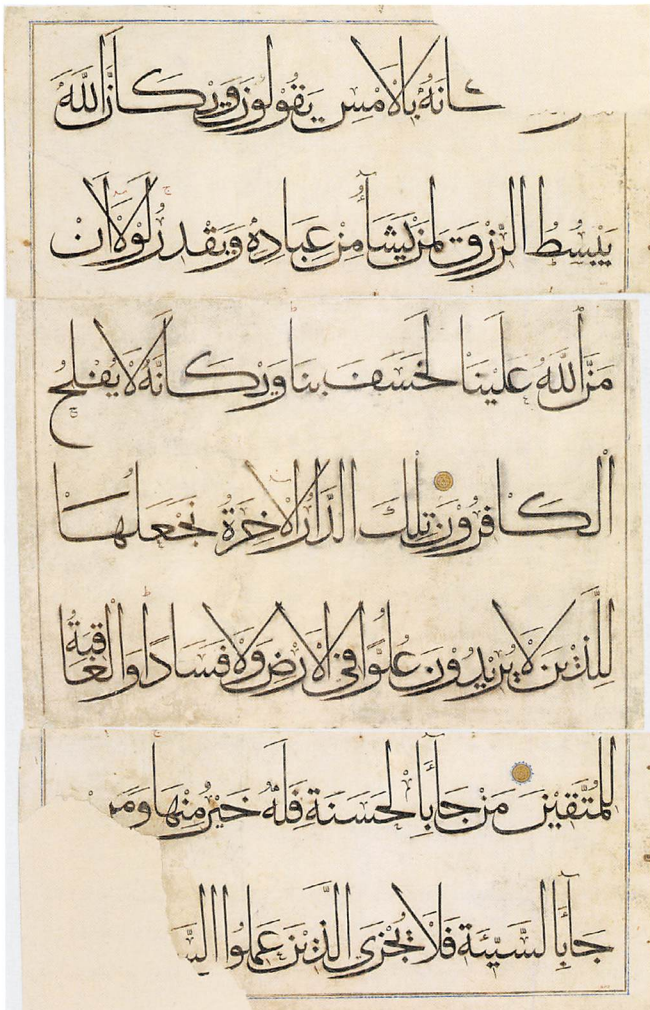 بِالْأَمْسِ يَقُولُونَ وَيْكَأَنَّ اللَّهَ
يَبْسُطُ الرِّزْقَ لِمَنْ يَشَآءُ مِنْ عِبَادِهِ وَيَقْدِرُ لَوْلَآ أَنْ
مَنَّ اللَّهُ عَلَيْنَا لَخَسَفَ بِنَا وَيْكَأَنَّهُ لَا يُفْلِحُ
الْكَافِرُونَ تِلْكَ الدَّارُ الْآخِرَةُ نَجْعَلُهَا
لِلَّذِينَ لَا يُرِيدُونَ عُلُوًّا فِي الْأَرْضِ وَلَا فَسَادًا وَالْعَاقِبَةُ
لِلْمُتَّقِينَ مَنْ جَآءَ بِالْحَسَنَةِ فَلَهُ خَيْرٌ مِنْهَا وَمَنْ
جَآءَ بِالسَّيِّئَةِ فَلَا يُجْزَى الَّذِينَ عَمِلُوا